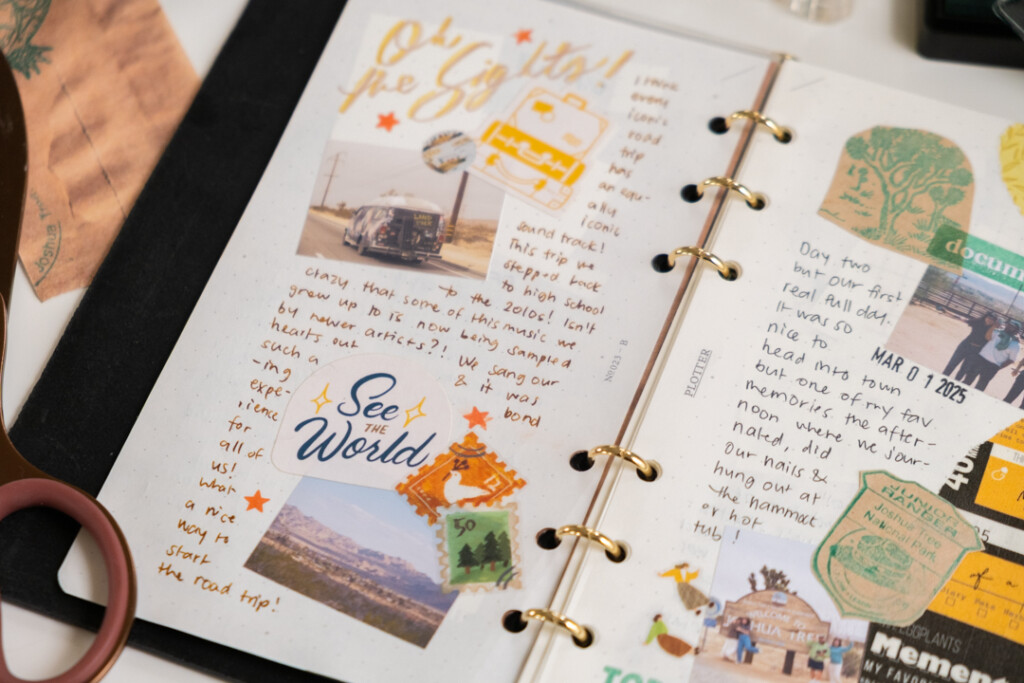 Oh!
the Sights!
I think
every
iconic
road
trip
has
an equ-
ally
iconic
sound track!
This trip we
stepped back
to high school
to the 2010s! Isn't
crazy that some of this music we
grew up to is now being sampled
by newer artists?! We sang our
hearts out & it was
such a bond
-ing
expe-
rience
for
all of
us!
What
a nice
way to
start
the road trip!
LAND
See
THE
World
50
No023-B
PLOTTER
Joshua
docum
Day two
but our first
real full day.
It was so
nice to
head into town
but one of my fav
memories the after-
noon where we jour-
naled, did
our nails &
hung out at
the hammock
or hot
tub!
MAR 0 1 2025
JUNIOR
RANGER
Joshua Tree
National Park
WELCOME TO
JOSHUA TREE
40
of a
EGGPLANTS
Mement
MY FAVOR
TO